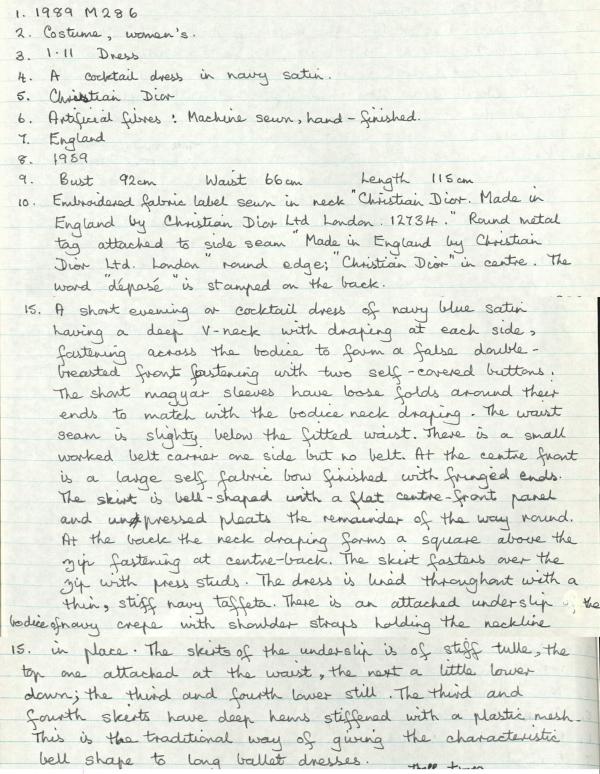 1. 1989 M286
2. Costume, women's.
3. 1.11 Dress
4. A cocktail dress in navy satin.
5. Christian Dior
6. Artificial fibres : Machine sewn, hand-finished.
7. England
8. 1959
9. Bust 92cm Waist 66cm Length 115cm
10. Embroidered fabric label sewn in neck "Christian Dior. Made in
England by Christian Dior Ltd London. 12734." Round metal
tag attached to side seam "Made in England by Christian
Dior Ltd. London" round edge; "Christian Dior" in centre. The
word "dépasé" is stamped on the back.
15. A short evening or cocktail dress of navy blue satin
having a deep V-neck with draping at each side,
fastening across the bodice to form a false double-
breasted front fastening with two self-covered buttons.
The short magyar sleeves have loose folds around their
ends to match with the bodice neck draping. The waist
seam is slighty below the fitted waist. There is a small
worked belt carrier one side but no belt. At the centre front
is a large self fabric bow finished with fringed ends.
The skirt is bell-shaped with a flat centre-front panel
and unpressed pleats the remainder of the way round.
At the back the neck draping forms a square above the
zip fastening at centre-back. The skirt fastens over the
zip with press studs. The dress is lined throughout with a
thin, stiff navy taffeta. There is an attached underslip, the
bodice of navy crepe with shoulder straps holding the neckline
15. in place. The skirts of the underslip is of stiff tulle, the
top one attached at the waist, the next a little lower
down; the third and fourth lower still. The third and
fourth skirts have deep hems stiffened with a plastic mesh.
This is the traditional way of giving the characteristic
bell shape to long ballet dresses.